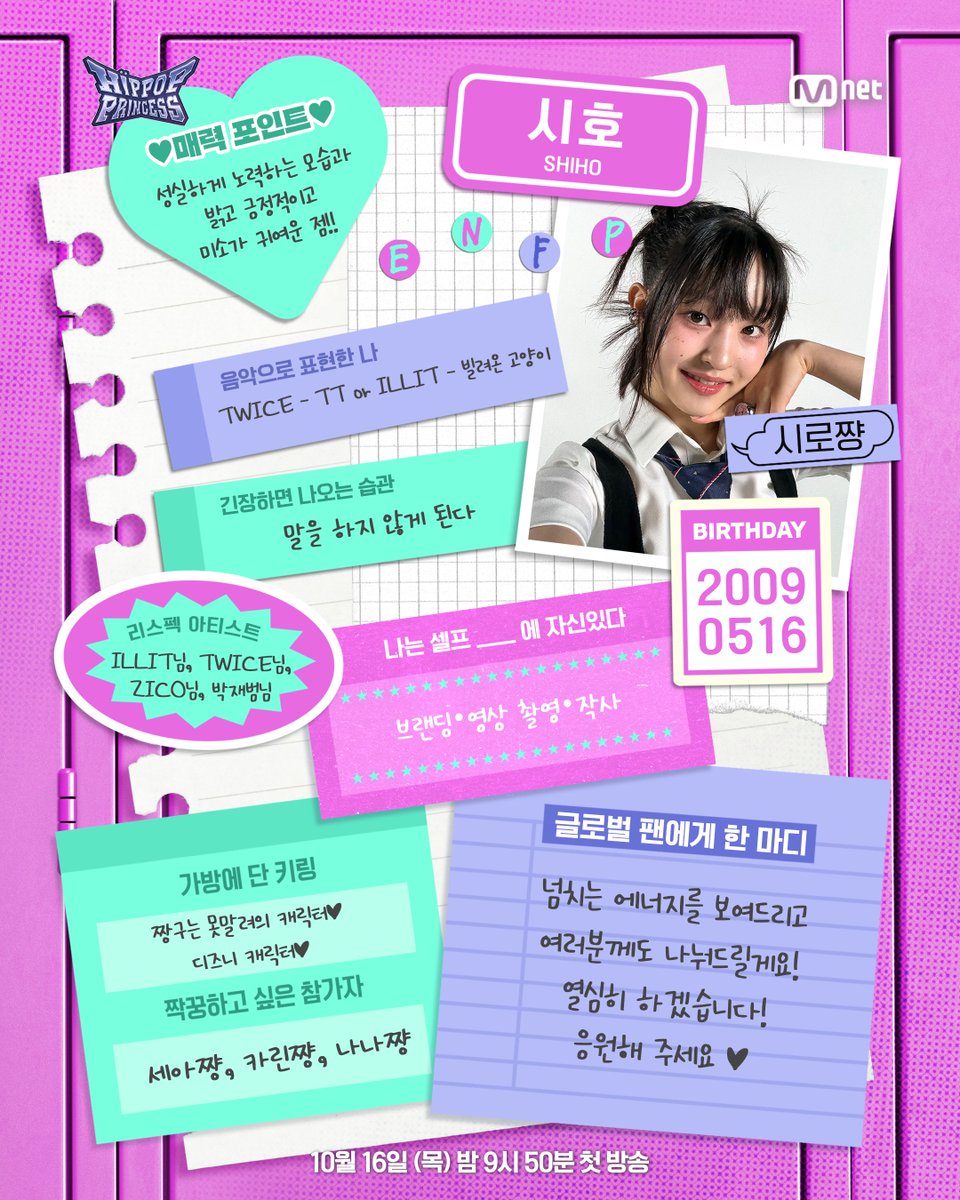 HIPPOP
PRINCESS
Mnet
♥매력 포인트♥
성실하게 노력하는 모습과
밝고 긍정적이고
미소가 귀여운 점!!
시호
SHIHO
E N F P
음악으로 표현한 나
TWICE - TT or ILLIT - 빌려온 고양이
시로쨩
긴장하면 나오는 습관
말을 하지 않게 된다
BIRTHDAY
2009
0516
리스펙 아티스트
ILLIT님, TWICE님,
ZICO님, 박재범님
나는 셀프 ___ 에 자신있다
브랜딩•영상 촬영•작사
가방에 단 키링
짱구는 못말려의 캐릭터♥
디즈니 캐릭터♥
짝꿍하고 싶은 참가자
세아쨩, 카린쨩, 나나쨩
글로벌 팬에게 한 마디
넘치는 에너지를 보여드리고
여러분께도 나눠드릴게요!
열심히 하겠습니다!
응원해 주세요 ♥
10월 16일 (목) 밤 9시 50분 첫 방송